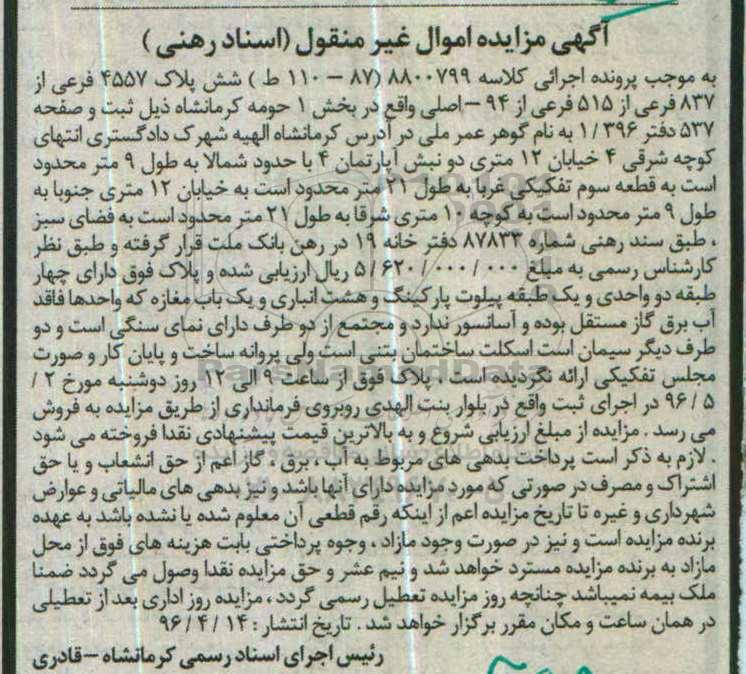 آگهی مزایده اموال غیر منقول (اسناد رهنی)
به موجب پرونده اجرائی کلاسه ۸۸۰۰۷۹۹ (۸۷ – ۱۱۰ ط) شش پلاک ۴۵۵۷ فرعی از
۸۳۷ فرعی از ۵۱۵ فرعی از ۹۴ –اصلی واقع در بخش ۱ حومه کرمانشاه ذیل ثبت و صفحه
۵۳۷ دفتر ۱/۳۹۶ به نام گوهر عمر ملی در آدرس کرمانشاه الهیه شهرک دادگستری انتهای
کوچه شرقی ۴ خیابان ۱۲ متری دو نبش آپارتمان ۴ با حدود شمالا به طول ۹ متر محدود
است به قطعه سوم تفکیکی غربا به طول ۲۱ متر محدود است به خیابان ۱۲ متری جنوبا به
طول ۹ متر محدود است به کوچه ۱۰ متری شرقا به طول ۲۱ متر محدود است به فضای سبز
، طبق سند رهنی شماره ۸۷۸۳۳ دفتر خانه ۱۹ در رهن بانک ملت قرار گرفته و طبق نظر
کارشناس رسمی به مبلغ ۵/۶۲۰/۰۰۰/۰۰۰ ریال ارزیابی شده و پلاک فوق دارای چهار
طبقه دو واحدی و یک طبقه پیلوت پارکینگ و هشت انباری و یک باب مغازه که واحدها فاقد
آب برق گاز مستقل بوده و آسانسور ندارد و مجتمع از دو طرف دارای نمای سنگی است و دو
طرف دیگر سیمان است اسکلت ساختمان بتنی است ولی پروانه ساخت و پایان کار و صورت
مجلس تفکیکی ارائه نگردیده است . پلاک فوق از ساعت ۹ الی ۱۲ روز دوشنبه مورخ ۲ /
۹۶/۵ در اجرای ثبت واقع در بلوار بنت الهدی روبروی فرمانداری از طریق مزایده به فروش
می رسد . مزایده از مبلغ ارزیابی شروع و به بالاترین قیمت پیشنهادی نقدا فروخته می شود
. لازم به ذکر است پرداخت بدهی های مربوط به آب ، برق ، گاز اعم از حق انشعاب و یا حق
اشتراک و مصرف در صورتی که مورد مزایده دارای آنها باشد و نیز بدهی های مالیاتی و عوارض
شهرداری و غیره تا تاریخ مزایده اعم از اینکه رقم قطعی آن معلوم شده یا نشده باشد به عهده
برنده مزایده است و نیز در صورت وجود مازاد ، وجوه پرداختی بابت هزینه های فوق از محل
مازاد به برنده مزایده مسترد خواهد شد و نیم عشر و حق مزایده نقدا وصول می گردد ضمنا
ملک بیمه نمیباشد چنانچه روز مزایده تعطیل رسمی گردد ، مزایده روز اداری بعد از تعطیلی
در همان ساعت و مکان مقرر برگزار خواهد شد . تاریخ انتشار : ۹۶/۴/۱۴
رئیس اجرای اسناد رسمی کرمانشاه –قادری